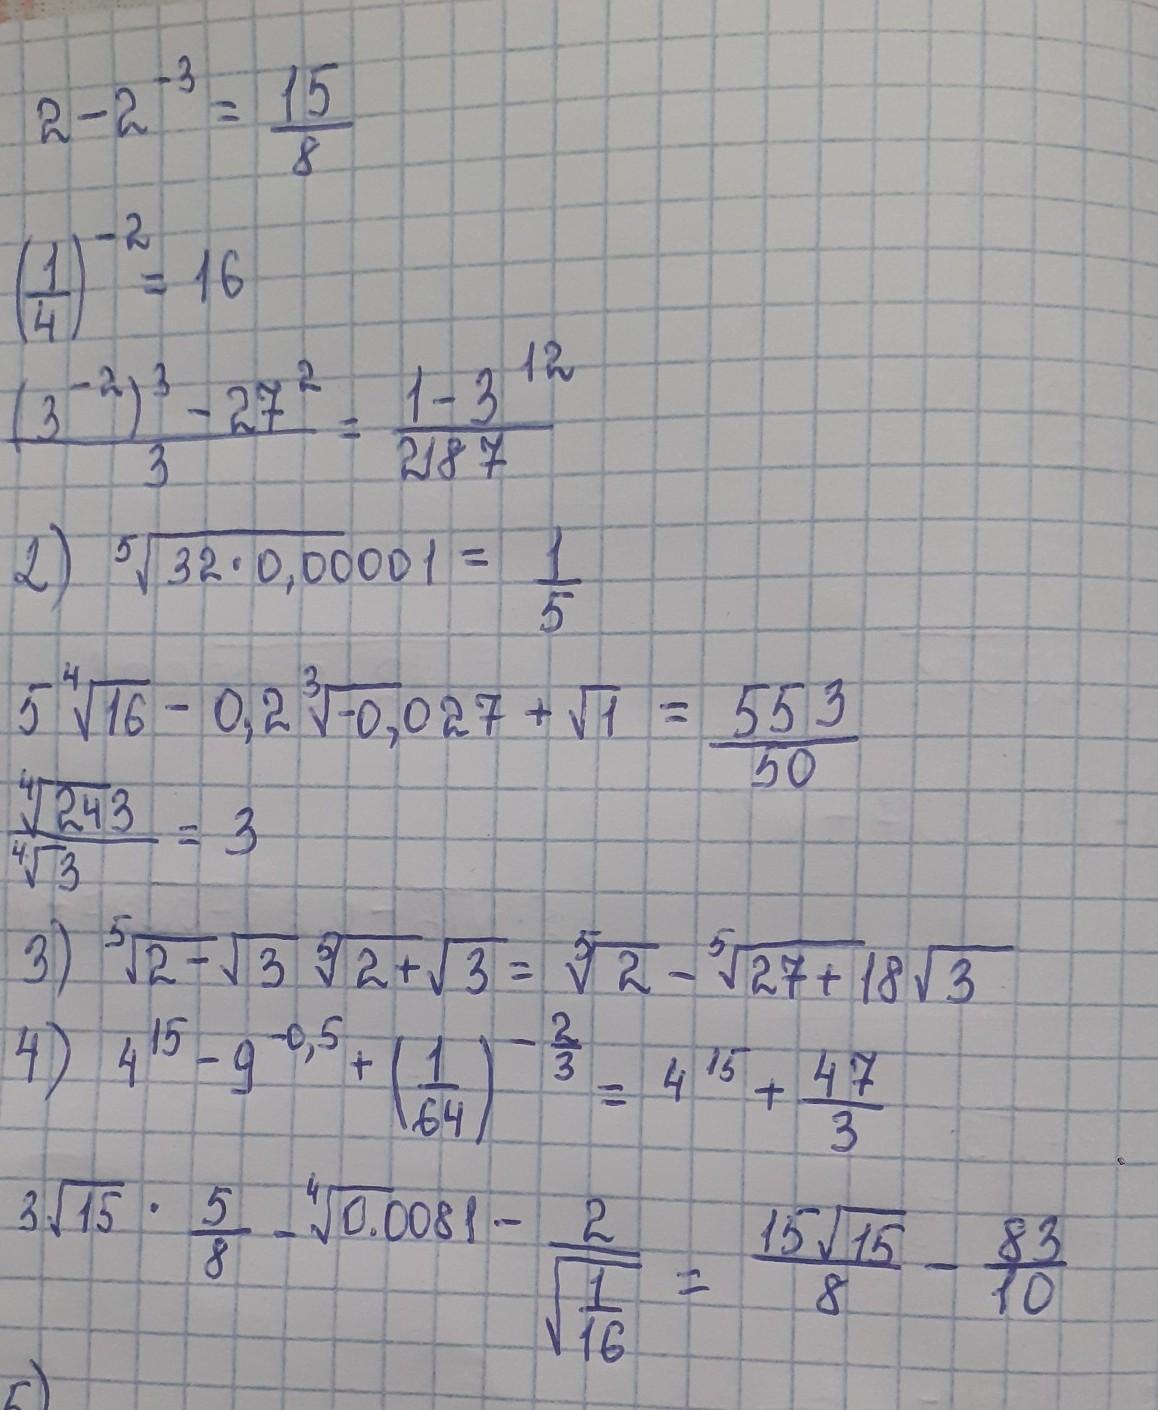 2 - 2^{-3} = \frac{15}{8}
\left(\frac{1}{4}\right)^{-2} = 16
\frac{(3^{-2})^3 - 27^2}{3} = \frac{1 - 3^{12}}{2187}
2) \sqrt[5]{32 \cdot 0,00001} = \frac{1}{5}
5\sqrt[4]{16} - 0,2\sqrt[3]{-0,027} + \sqrt{1} = \frac{553}{50}
\frac{\sqrt[4]{243}}{\sqrt[4]{3}} = 3
3) \sqrt[5]{2 - \sqrt{3}} \sqrt[5]{2 + \sqrt{3}} = \sqrt[5]{2} - \sqrt[5]{27 + 18\sqrt{3}}
4) 4^{15} - 9^{-0,5} + \left(\frac{1}{64}\right)^{-\frac{2}{3}} = 4^{15} + \frac{47}{3}
3\sqrt{15} \cdot \frac{5}{8} - \sqrt[4]{0.0081} - \frac{2}{\sqrt{\frac{1}{16}}} = \frac{15\sqrt{15}}{8} - \frac{83}{10}
5)